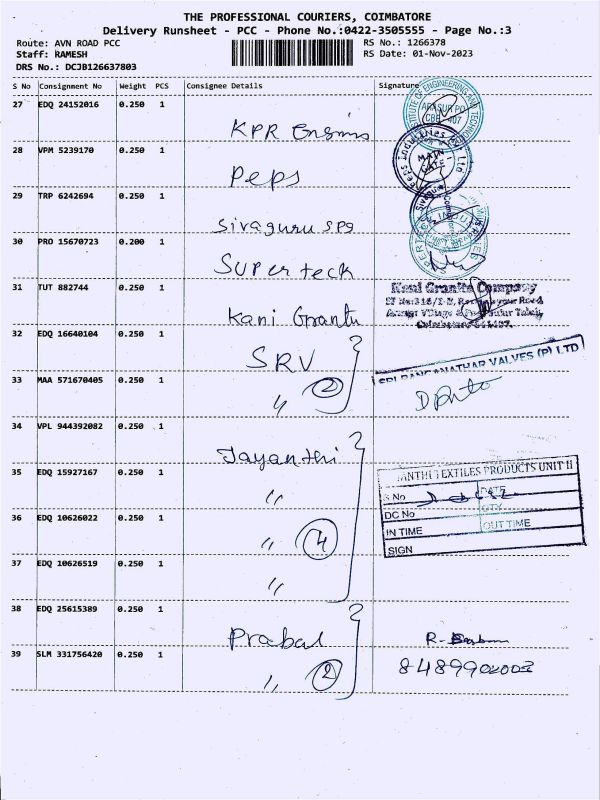 THE PROFESSIONAL COURIERS, COIMBATORE
Delivery Runsheet - PCC - Phone No.:0422-3505555 - Page No.:3
Route: AVN ROAD PCC RS No.: 1266378
Staff: RAMESH RS Date: 01-Nov-2023
DRS No.: DCJB126637803
S No Consignment No Weight PCS Consignee Details Signature
27 EDQ 24152016 0.250 1 KPR
INSTITUTE OF ENGINEERING AND TECHNOLOGY
ARASUR PO
CBE - 407
28 VPM 5239170 0.250 1 Peps
Peps Industries Pvt Ltd
MAIN GATE
29 TRP 6242694 0.250 1 Sivaguru spg
30 PRO 15670723 0.200 1 Superteck
31 TUT 882744 0.250 1 Kani
Kani Granite Company
Coimbatore 641407.
32 EDQ 16640104 0.250 1 SRV
33 MAA 571670405 0.250 1 " 2
SRI RANGANATHAR VALVES (P) LTD
34 VPL 944392082 0.250 1 Jayanthi
35 EDQ 15927167 0.250 1 "
ANTHI TEXTILES PRODUCTS UNIT II
S No DATE
DC No QTY
IN TIME OUT TIME
SIGN
36 EDQ 10626022 0.250 1 " 4
37 EDQ 10626519 0.250 1 "
38 EDQ 25615389 0.250 1 Prabal R-
39 SLM 331756420 0.250 1 " 2 8489902003